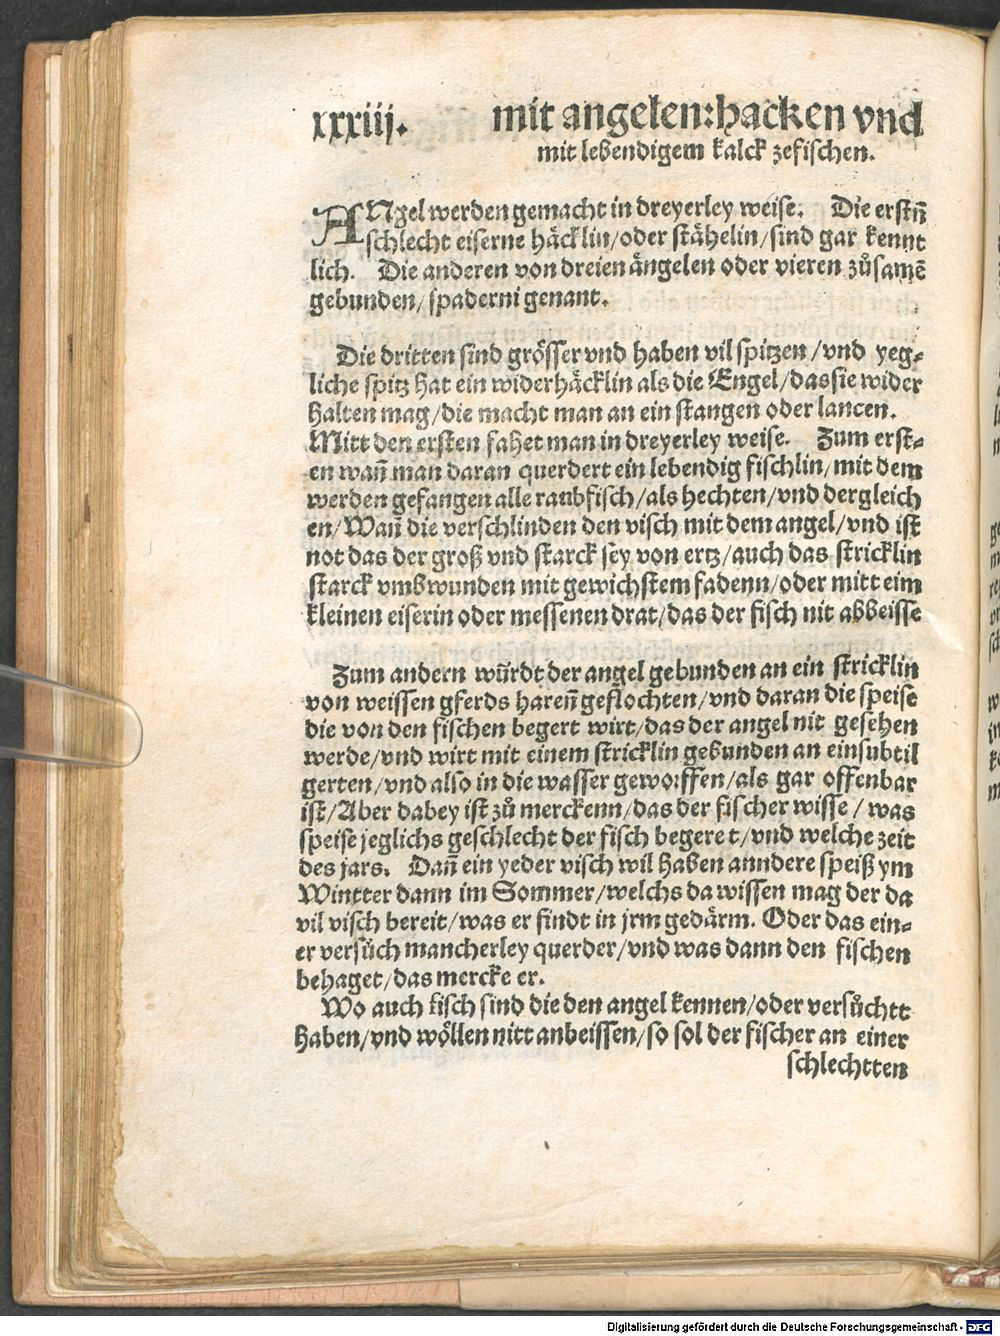 xxxiij. mit angelen:hacken vnd
mit lebendigem kalck zefischen.
ANgel werden gemacht in dreyerley weise. Die erstñ
schlecht eiserne häcklin/oder stähelin/sind gar kennt
lich. Die anderen von dreien ängelen oder vieren zůsamẽ
gebunden/spaderni genant.
Die dritten sind grösser vnd haben vil spitzen/vnd yeg-
liche spitz hat ein widerhäcklin als die Engel/das sie wider
halten mag/die macht man an ein stangen oder lancen.
Mitt den ersten fahet man in dreyerley weise. Zum erst-
en wañ man daran querdert ein lebendig fischlin/mit dem
werden gefangen alle raubfisch/als hechten/vnd dergleich
en/Wañ die verschlinden den visch mit dem angel/vnd ist
not das der groß vnd starck sey von ertz/auch das stricklin
starck vmbwunden mit gewichstem fadenn/oder mitt eim
kleinen eiserin oder messenen drat/das der fisch nit abbeisse
Zum andern würdt der angel gebunden an ein stricklin
von weissen gferds hareñ geflochten/vnd daran die speise
die von den fischen begert wirt/das der angel nit gesehen
werde/vnd wirt mit einem stricklin gebunden an ein subtil
gerten/vnd also in die wasser geworffen/als gar offenbar
ist/Aber dabey ist zů merckenn/das der fischer wisse/was
speise jeglichs geschlecht der fisch begeret/vnd welche zeit
des jars. Dañ ein yeder visch wil haben anndere speiß ym
Wintter dann im Sommer/welchs da wissen mag der da
vil visch bereit/was er findt in jrm gedärm. Oder das ein-
er versůch mancherley querder/vnd was dann den fischen
behaget/das mercke er.
Wo auch fisch sind die den angel kennen/oder versůchtt
haben/vnd wöllen nitt anbeissen/so sol der fischer an einer
schlechtten
Digitalisierung gefördert durch die Deutsche Forschungsgemeinschaft - DFG